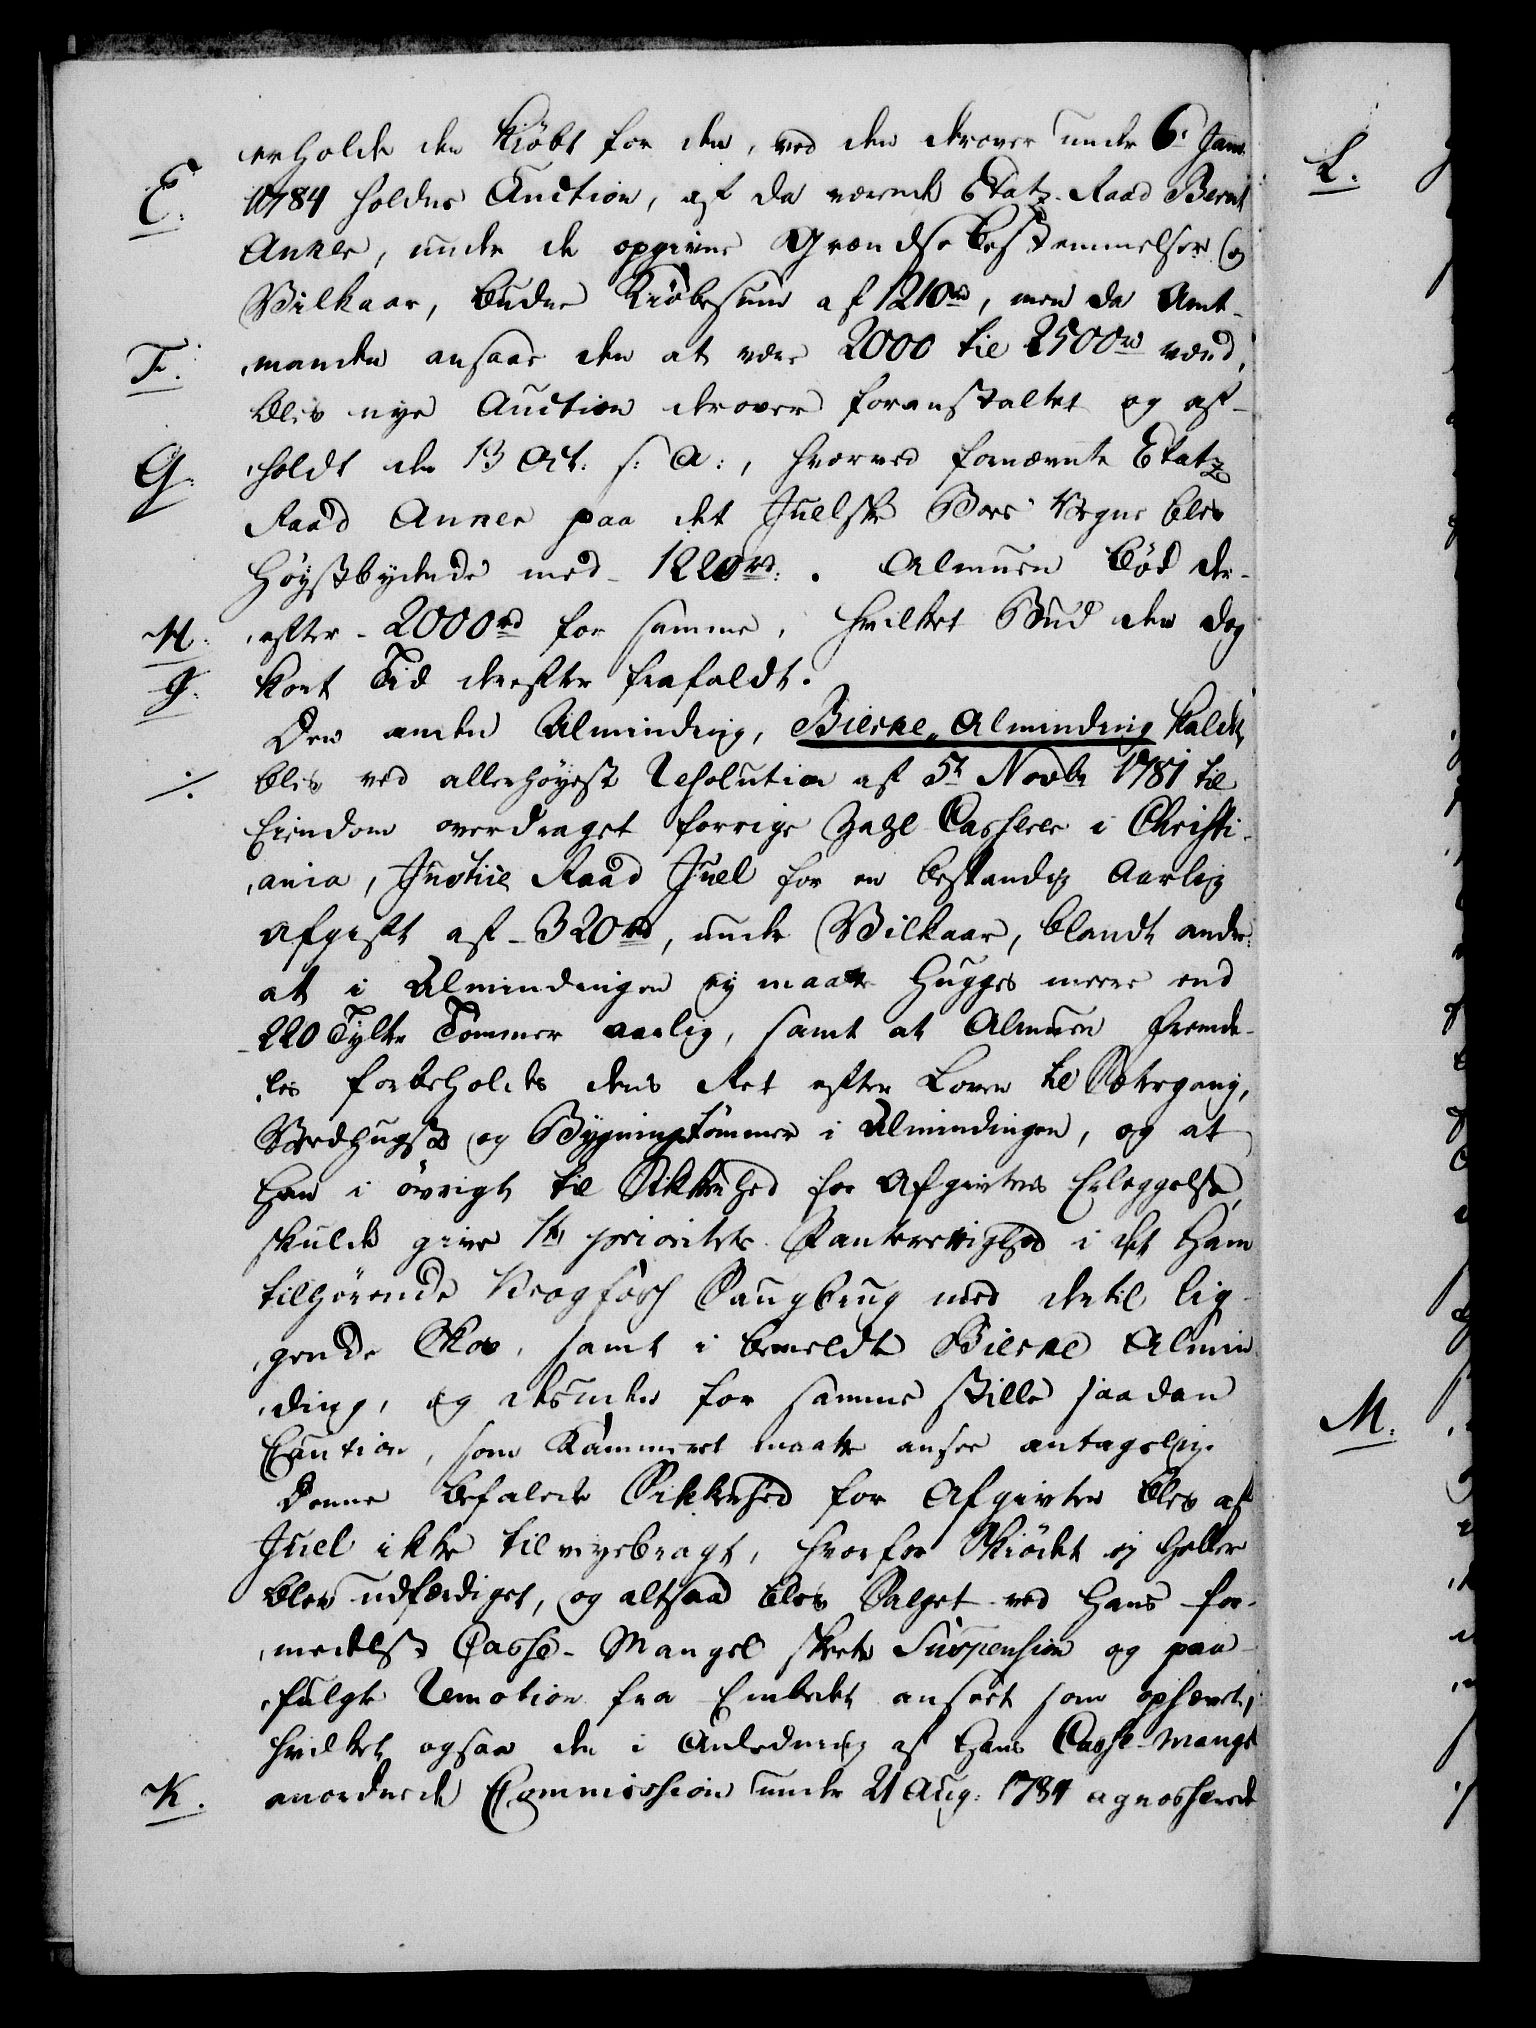 erholde den kiöbt for den, ved den derover under 6. Janr.
E. 1784 holdne Auction, af da værende Etatz-Raad Bernt
Anker, under de opgivne Grændsebestemmelser og
Vilkaar, budne Kiöbesum af 1210rd, men da Amt-
F. manden ansaae den at være 2000 til 2500rd værd,
blev nye Auction derover foranstaltet og af-
G. holdt den 13 Oct: s: A:, hvorved fornævnte Etatz
Raad Anker paa det Juelske Boes Vegne blev
Höystbydende med 1220rd:. Almuen böd der-
H. efter 2000rd for samme, hvilket Bud den dog
J. kort Tid derefter frafaldt.
Den anden Alminding, Bierke Alminding kaldt,
./. blev ved allerhöyeste Resolution af 5te Novbr 1781 til
Eiendom overdraget forrige Zahl-Casserer i Christi-
ania, Justice Raad Juel for en bestandig Aarlig
Afgift af 320rd, under Vilkaar, blandt andre:
at i Almindingen ey maatte hugges meere end
220 Tylter Tömmer aarlig, samt at Almuen fremde-
les forbeholdes dens Ret efter Loven til Sætergang,
Vedhugst og Bygningstömmer i Almindingen, og at
han i övrigt til Sikkerhed for Afgivtens Erlæggelse,
skulde give 1te prioritets Panterettighed i det ham
tilhörende Krogfos Saugbrug med dertil lig-
gende Skov, samt i bemeldte Bierke Almin-
ding, og desuden for samme stille saadan
Caution, som Kammeret maatte ansee antagelig.
Denne befalede Sikkerhed for Afgivten blev af
Juel ikke tilveyebragt, hvorfor Skiödet ej heller
blev udfærdiget, og altsaa blev Salget ved hans for-
medelst Casse-Mangel skeete Suspension og paa-
fulgte Remotion fra Embedet anseet som ophævet,
hvilket ogsaa den i Anledning af hans Casse-Mangel
K. anordnede Commission under 21 Aug: 1784 agnoscerede
L.
M.